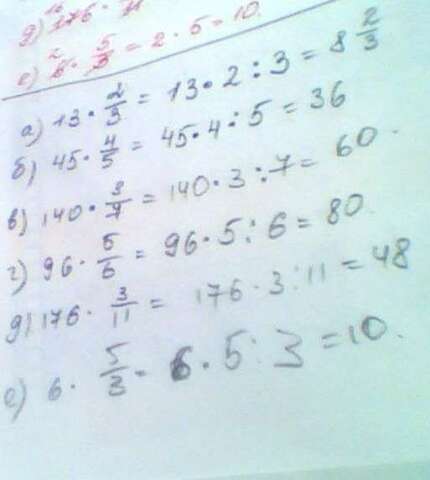 д) 176 · 11
е) 6 · 5/3 = 2 · 5 = 10.
а) 13 · 2/3 = 13 · 2 : 3 = 8 2/3
б) 45 · 4/5 = 45 · 4 : 5 = 36
в) 140 · 3/7 = 140 · 3 : 7 = 60.
г) 96 · 5/6 = 96 · 5 : 6 = 80.
д) 176 · 3/11 = 176 · 3 : 11 = 48
е) 6 · 5/3 = 6 · 5 : 3 = 10.